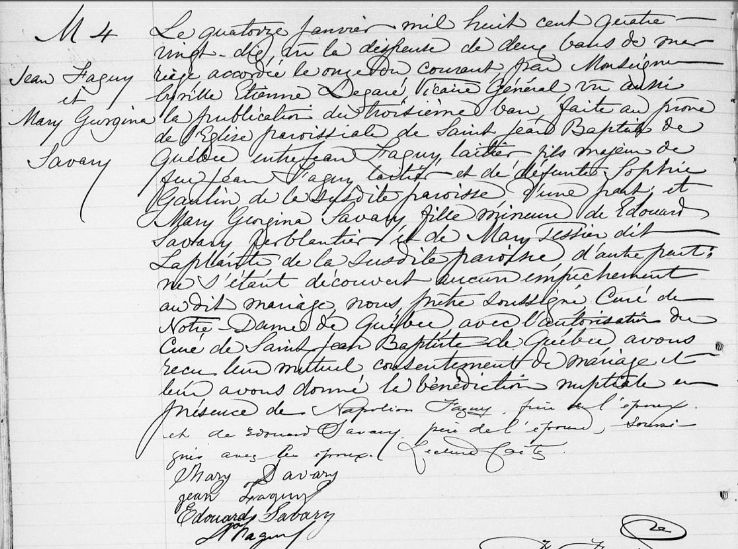 M 4
Jean Faguy
et
Mary Georgina
Savary
Le quatorze janvier mil huit cent quatre-
vingt-dix, vu la dispense de deux bans de mar
riage accordée le onze du courant par Monseigneur
Cyrille Etienne Legaré, Vicaire Général vu aussi
la publication du troisième ban, faite au prone
de l'Eglise paroissiale de Saint Jean Baptiste de
Québec entre Jean Faguy, laitier, fils majeur de
feu Jean Faguy laitier et de défunte Sophie
Gaulin de la susdite paroisse d'une part; et
Mary Georgina Savary fille mineure de Edouard
Savary ferblantier et de Mary Tessier dit
Laplante de la susdite paroisse d'autre part;
ne s'étant découvert aucun empêchement
au dit mariage, nous prêtre soussigné Curé de
Notre-Dame de Québec avec l'autorisation du
Curé de Saint Jean Baptiste de Québec avons
reçu leur mutuel consentement de mariage et
leur avons donné la bénédiction nuptiale en
présence de Napoléon Faguy, frère de l'époux
et de Edouard Savary père de l'épouse, soussi-
gnés avec les époux. Lecture faite.
Mary Savary
Jean Faguy
Edouard Savary
Faguy